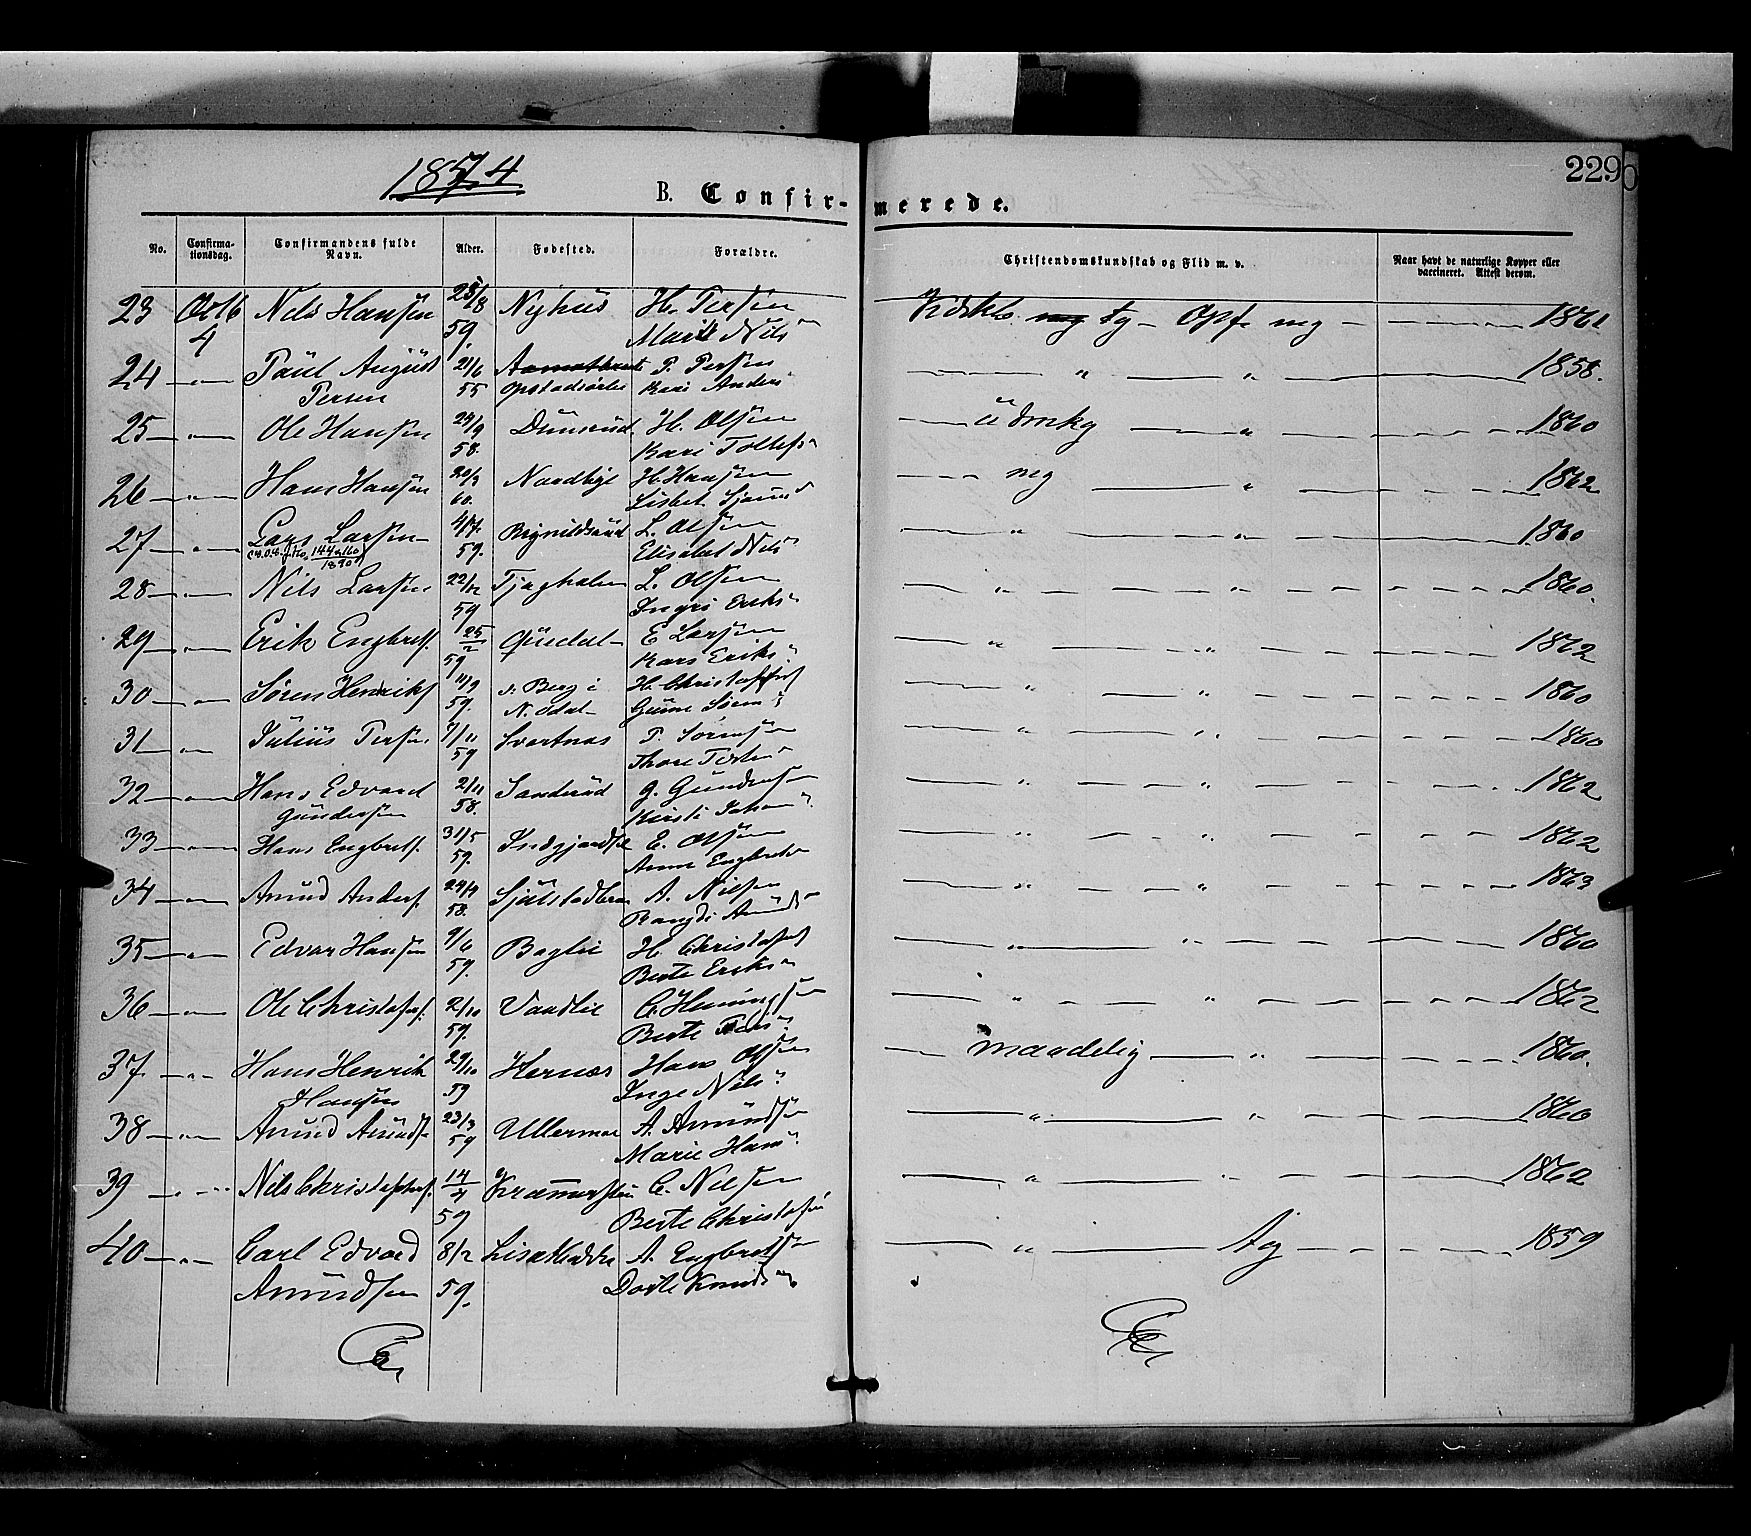 1874
229
B. Confir- merede.
No. Confirma-tionsdag. Confirmandens fulde Navn. Alder. Fødested. Forældre. Christendomskundskab og Flid m. v. Naar havt de naturlige Kopper eller vaccineret. Attest derom.
23 Octb 4 Nils Hansen 28/8 59. Nyhus H. Persen Marit Nils" tg - Opf. mg 1861
24 — " — Paul August Persen 21/6 55 P. Persen Kari Anders " " 1858.
25 — " — Ole Hansen 24/9 58. Dunsrud H. Olsen Kari Tollefs" üdmkg " 1860
26 — " — Hans Hansen 20/3 60. Nordbye H. Hansen Lisbet mg " 1862
27 — " — Lars Larsen 4/7. 59. L. Olsen Elisabet Nils " " 1860
28 — " — Nils Larsen 22/12 59 L. Olsen Ingri Eriks" " " 1860.
29 — " — Erik Engbrets. 25/2 59 E Larsen Kari Eriks" " " 1862
30 — " — Søren Henriks 11/9 59. v. Berg i N. Odal H. Christoffers Gunne Søren" " " 1860
31 — " — Julius Persen 7/11 59 Svartnas P. Sørensen Thore Peders " " 1860
32 — " — Hans Edvard Gundersen 2/11 58. Sanderud G. Gundersen Kirsti Johan" " " 1862
33 — " — Hans Engbrets. 31/5 59. E. Olsen Anne Engbrets " " 1862
34 — " — Amund Anders. 24/4 58. A. Nilsen Rangdi Amunds" " " 1863
35 — " — Edvar Hansen 9/6 59. Baglie H. Christofers Berte Eriks" " " 1860
36 — " — Ole Christofers. 2/10 59. Vaadlie C. Hemingsen Berte " " 1862
37 — " — Hans Henrik Hansen 29/10 59 Hernæs Hans Olsen Inge Nils" maadelig " 1860.
38 — " — Amund Amunds" 23/3 59 Ullermoe A. Amundsen Marie Hans" " " 1860
39 — " — Nils Christoffers. 14/4 59 C. Nilsen Berte Christofers " " 1862
40 — " — Carl Edvard Amundsen 8/2 59. A. Engbretsen Dorte Knuds" " tg 1859